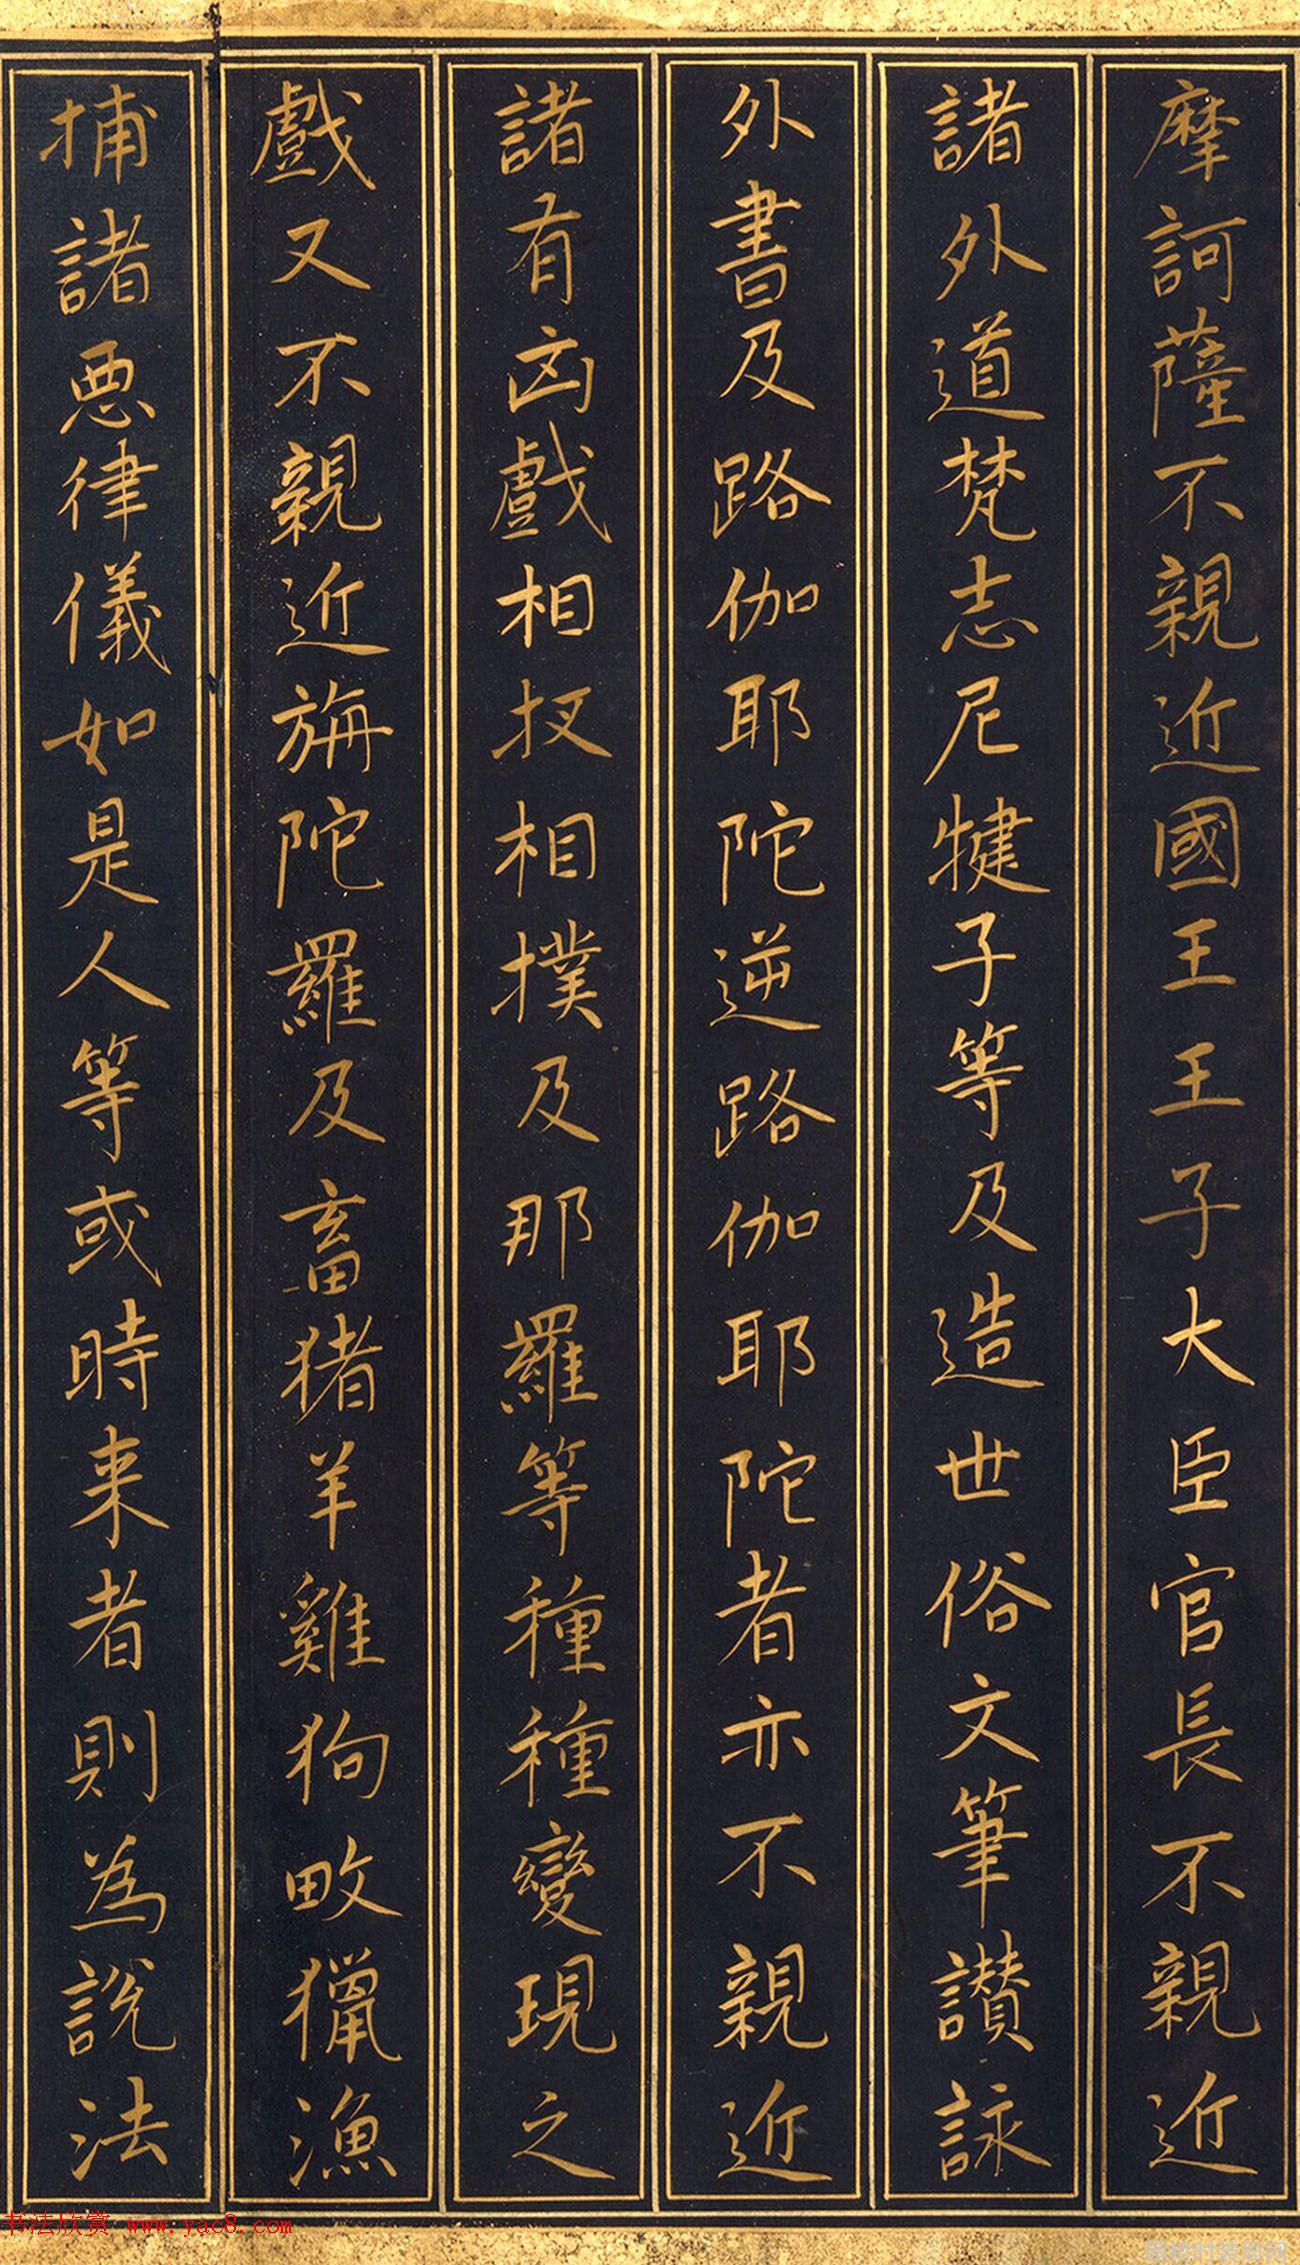 摩訶薩不親近國王王子大臣官長不親近
諸外道梵志尼犍子等及造世俗文筆讃詠
外書及路伽耶陀逆路伽耶陀者亦不親近
諸有凶戲相扠相撲及那羅等種種變現之
戲又不親近旃陀羅及畜猪羊雞狗畋獵漁
捕諸惡律儀如是人等或時来者則為説法
书法欣赏 www.yac8.com